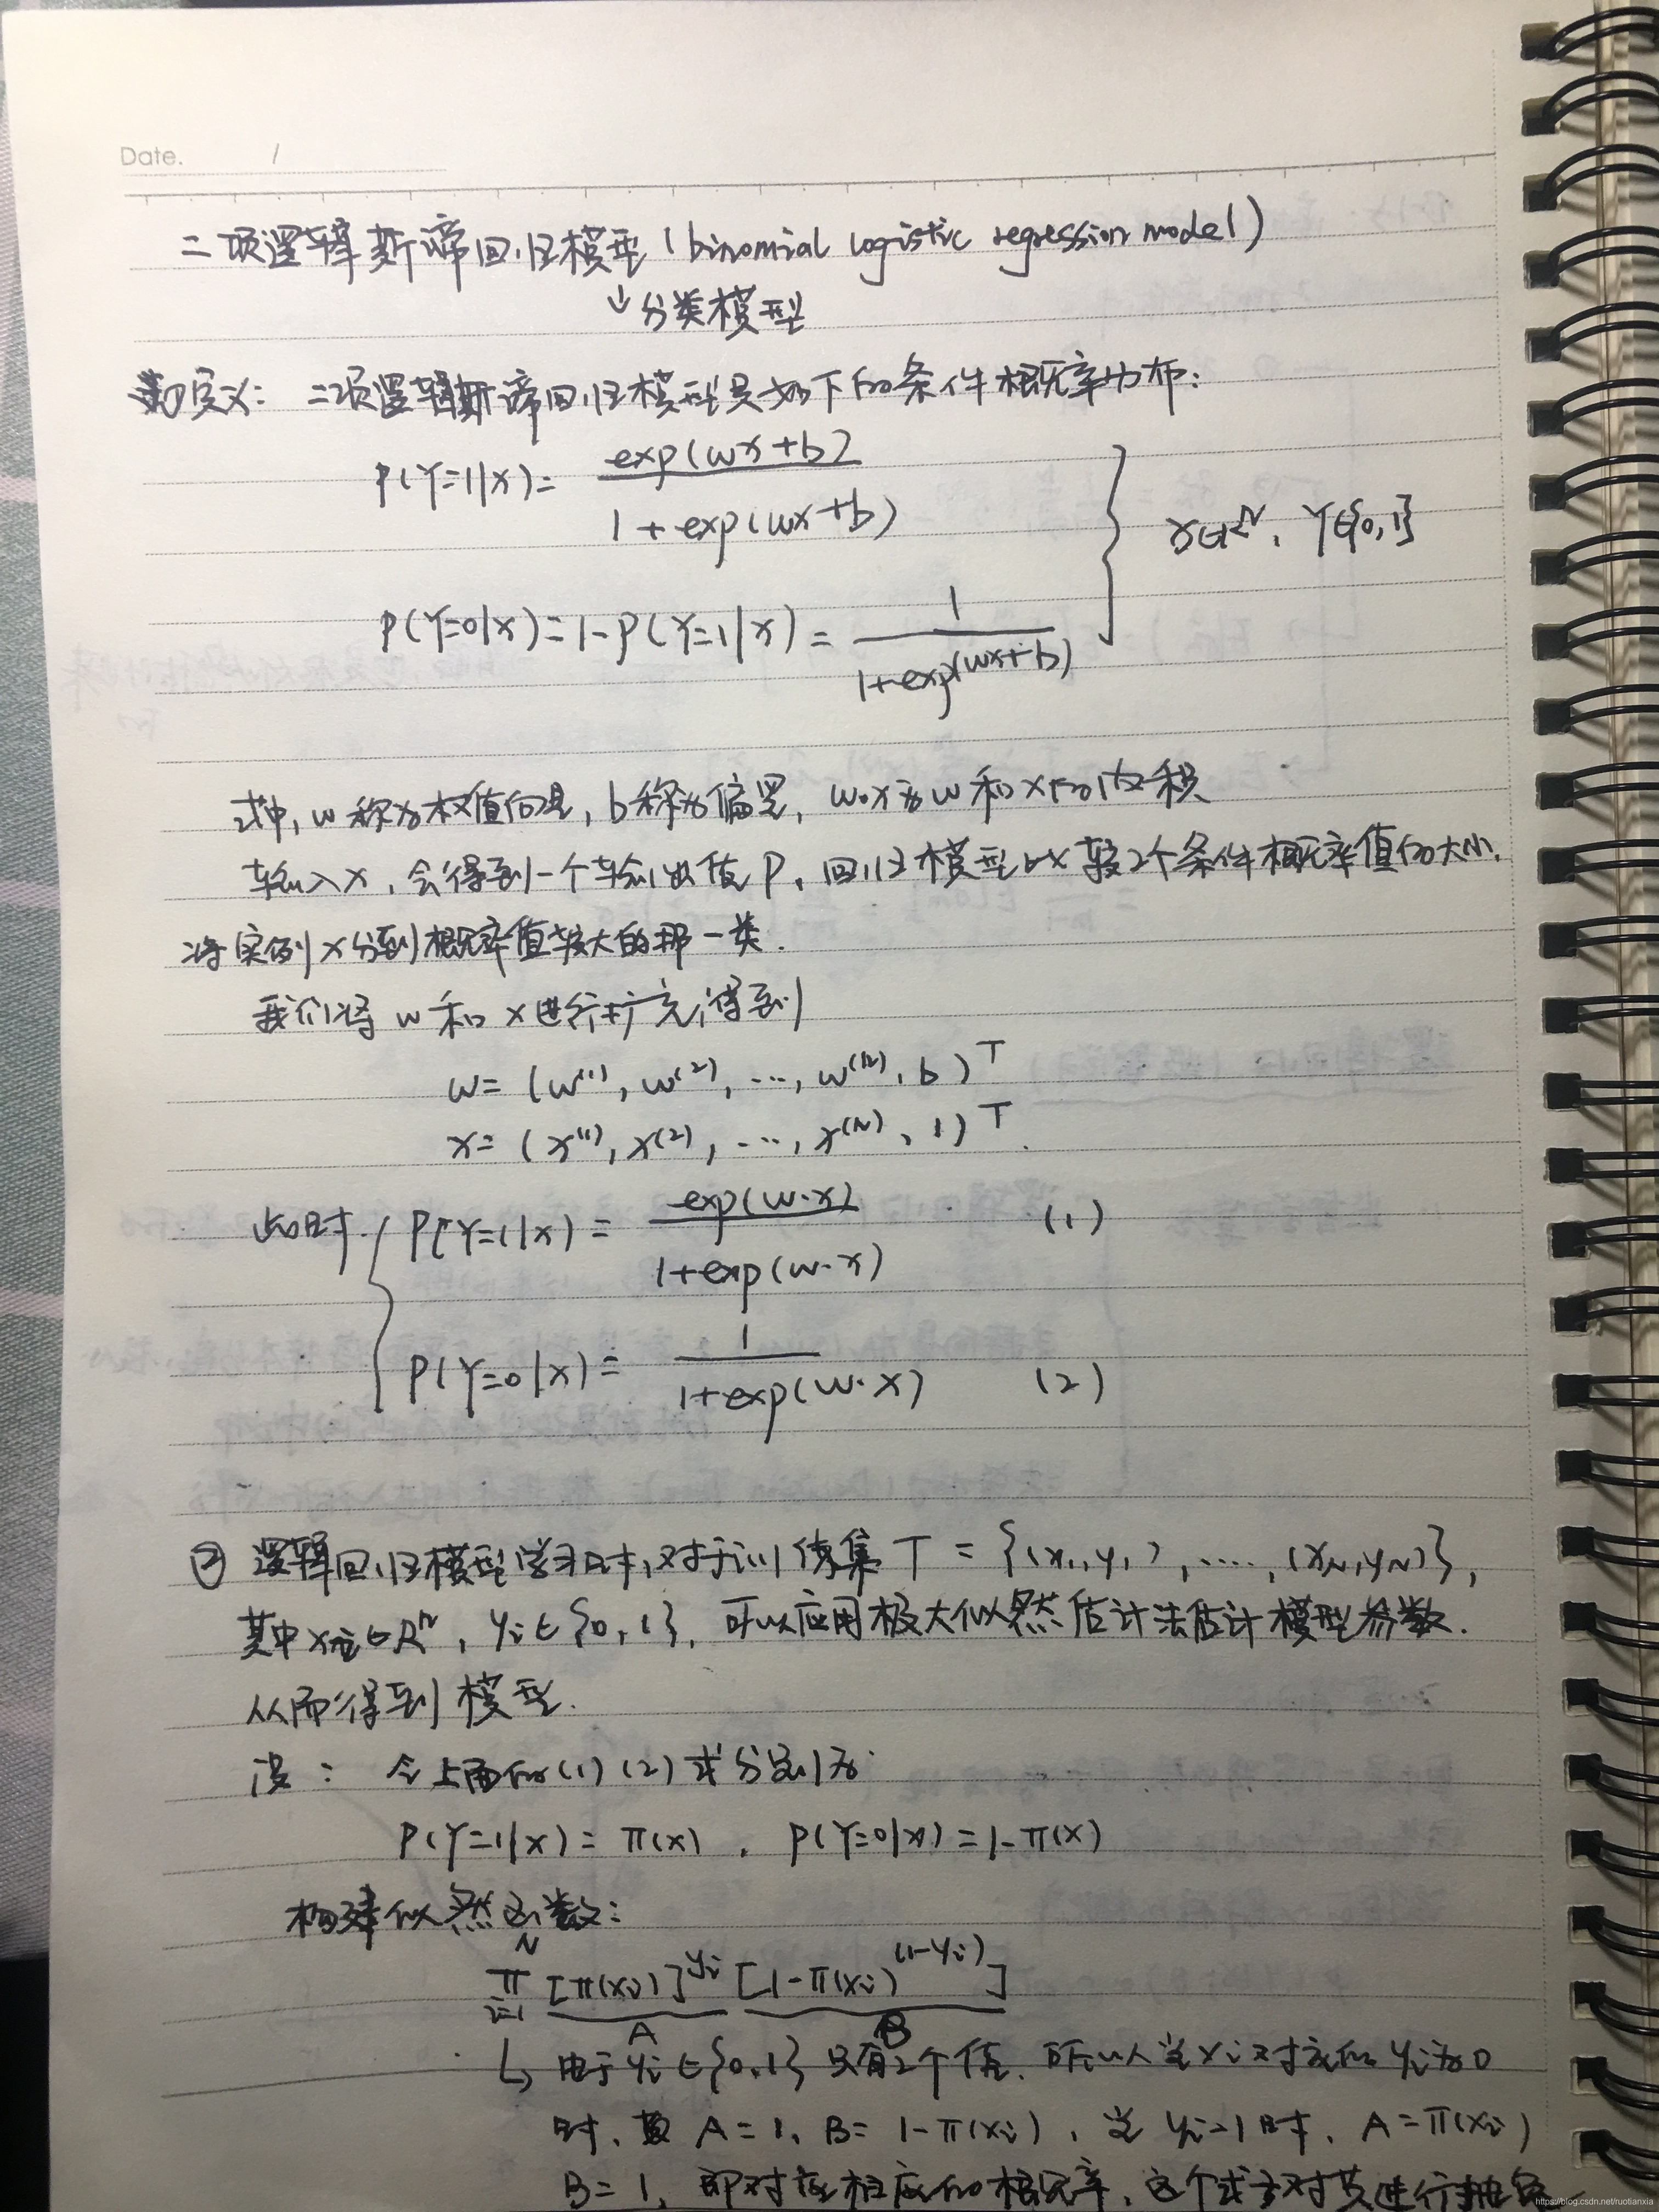 Date. /
二项逻辑斯谛回归模型(binomial logistic regression model)
↓分类模型
定义: 二项逻辑斯谛回归模型是如下的条件概率分布:
P(Y=1|x)= exp(wx+b) / 1+exp(wx+b)
x∈R^N, Y∈{0,1}
P(Y=0|x)=1-P(Y=1|x)= 1 / 1+exp(wx+b)
式中, w称为权值向量, b称为偏置, w·x为w和x的内积
输入x, 会得到一个输出值P, 回归模型比较2个条件概率值的大小.
将实例x分到概率值较大的那一类.
我们将w和x进行扩充得到
w= (w^(1), w^(2), ..., w^(n), b)^T
x= (x^(1), x^(2), ..., x^(N), 1)^T.
此时 P(Y=1|x) = exp(w·x) / 1+exp(w·x) (1)
P(Y=0|x) = 1 / 1+exp(w·x) (2)
② 逻辑回归模型学习时, 对于训练集 T = {(x₁,y₁), ...., (x_N,y_N)},
其中x_i∈R^n, y_i∈{0,1}, 可以应用极大似然估计法估计模型参数.
从而得到模型.
设: 令上面的(1)(2)式分别为:
P(Y=1|x)= π(x), P(Y=0|x)=1-π(x)
构建似然函数:
∏_{i=1}^N [π(x_i)]^{y_i} [1-π(x_i)^{(1-y_i)}]
A B
↳ 由于y_i∈{0,1}只有2个值. 所以当x_i对应的y_i为0
时, A=1, B= 1-π(x_i), 当y_i=1时, A=π(x_i)
B=1, 即对应相应的概率, 这个式子对其进行抽象
https://blog.csdn.net/ruotianxia